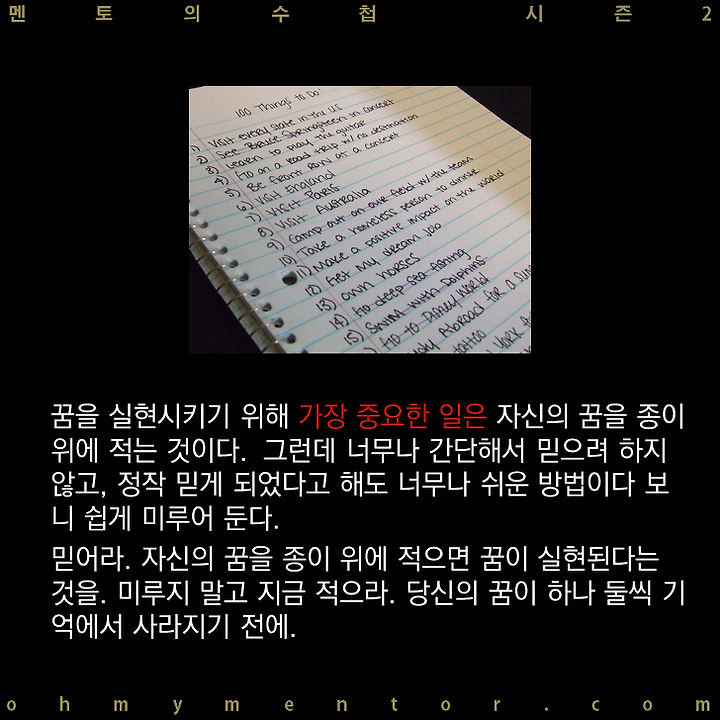 멘토의수첩 시즌2
100 Things to Do
1) Visit every state in the US
2) See Bruce Springsteen in concert
3) Learn to play the guitar
4) Go on a road trip w/ no destination
5) Be front row at a concert
6) Visit England
7) Visit Paris
8) Visit Australia
9) Camp out on our field w/ the team
10) Take a homeless person to dinner
11) Make a positive impact on the world
12) Get my dream job
13) Own horses
14) Go deep sea fishing
15) Swim with Dolphins
Go to Disney World
Abroad for a
tattoo
work
꿈을 실현시키기 위해 가장 중요한 일은 자신의 꿈을 종이
위에 적는 것이다. 그런데 너무나 간단해서 믿으려 하지
않고, 정작 믿게 되었다고 해도 너무나 쉬운 방법이다 보
니 쉽게 미루어 둔다.
믿어라. 자신의 꿈을 종이 위에 적으면 꿈이 실현된다는
것을. 미루지 말고 지금 적으라. 당신의 꿈이 하나 둘씩 기
억에서 사라지기 전에.
ohmymentor.com